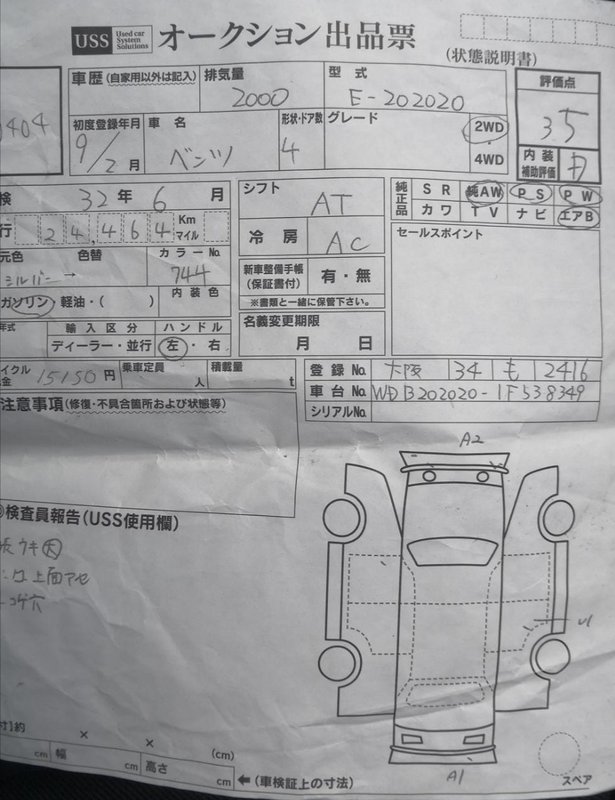 USS Used car System Solutions オークション出品票
(状態説明書)
車歴 (自家用以外は記入) 排気量 2000 型式 E-202020
評価点 35
初度登録年月 9年/2月 車名 ベンツ 形状・ドア数 4 グレード 2WD 4WD
内装補助評価
0404
検 32年6月
シフト AT
純正品 SR 純AW PS PW
カワ TV ナビ エアB
行 24,464 Km マイル
冷房 AC
セールスポイント
元色 色替 カラーNo.
シルバー → 744
新車整備手帳(保証書付) 有・無
※書類と一緒に保管下さい。
ガソリン・軽油・( ) 内装色
名義変更期限
月 日
年式 輸入区分 ハンドル
ディーラー・並行 左・右
イクル 金 15150円 乗車定員 人 積載量 t
登録No. 大阪 34 も 2416
車台No. WDB202020-1F538349
シリアルNo.
注意事項(修復・不具合箇所および状態等)
A2
検査員報告(USS使用欄)
上面アセ
コゲ穴
U1
寸)約 × × (cm)
cm 幅 cm 高さ cm ←(車検証上の寸法)
A1
スペア